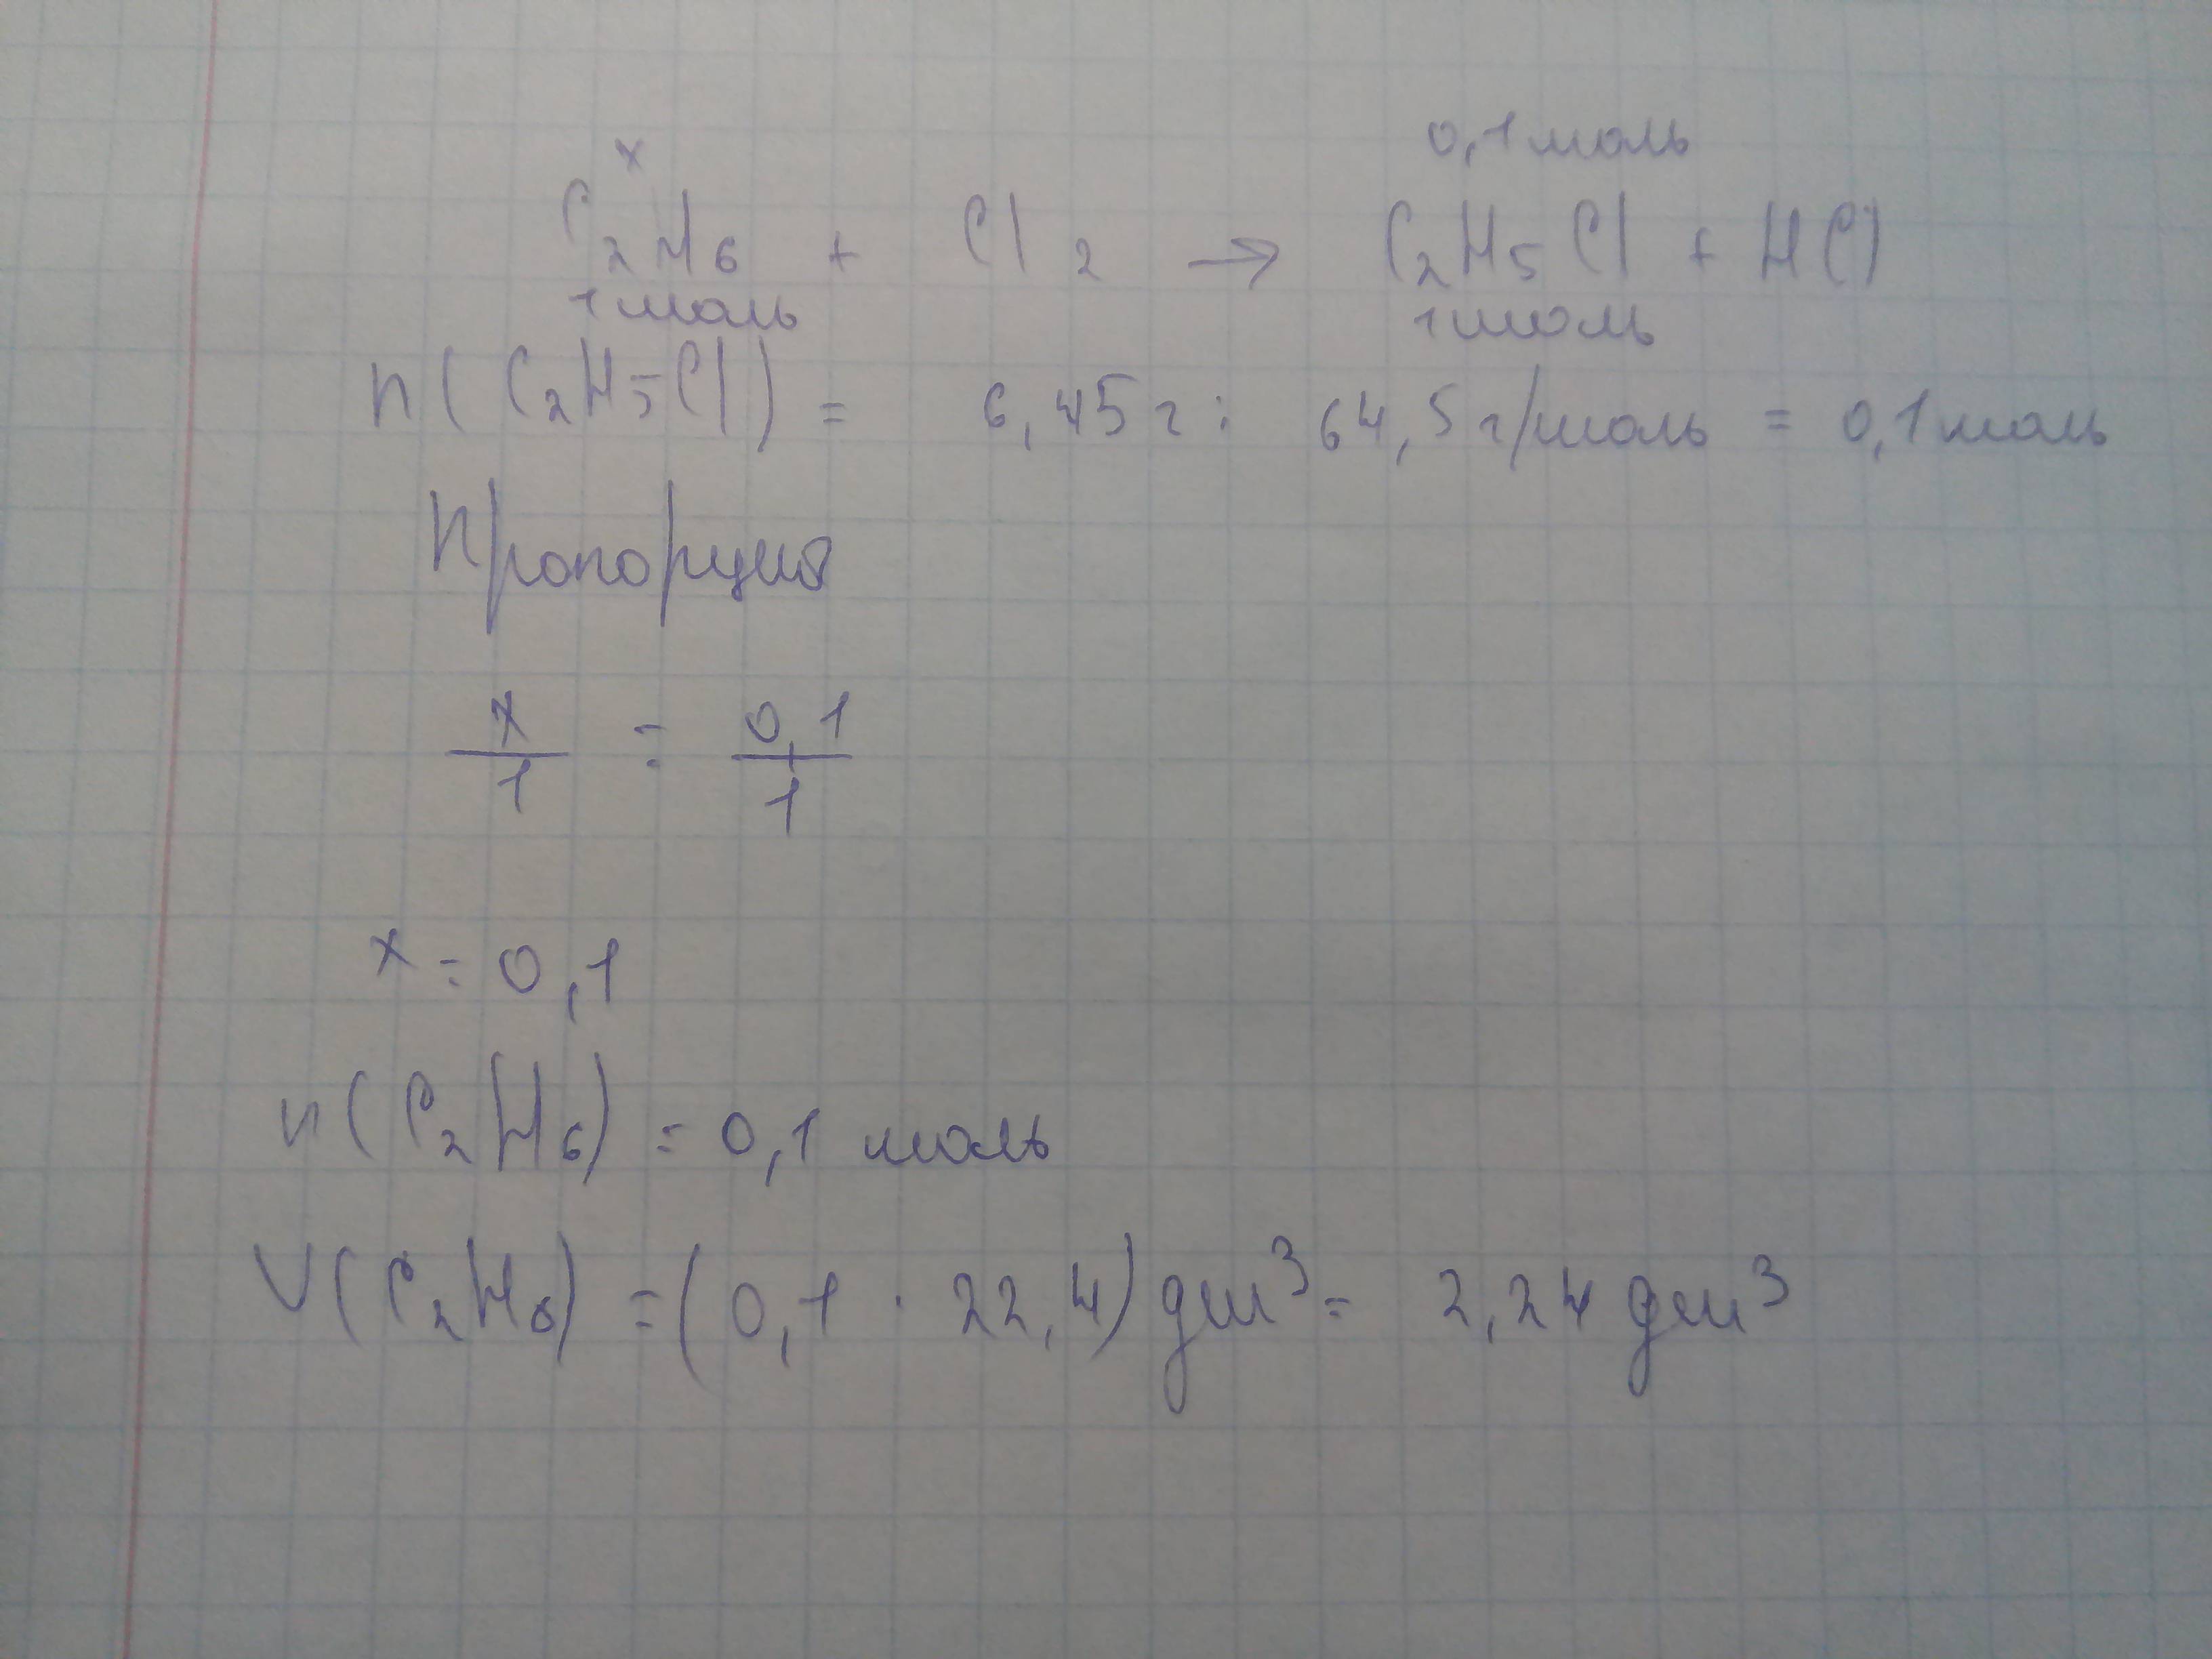 x 0,1 моль
C2H6 + Cl2 → C2H5Cl + HCl
1 моль 1 моль
n(C2H5Cl) = 6,45 г : 64,5 г/моль = 0,1 моль
Пропорция
x/1 = 0,1/1
x = 0,1
n(C2H6) = 0,1 моль
V(C2H6) = (0,1 · 22,4) дм³ = 2,24 дм³